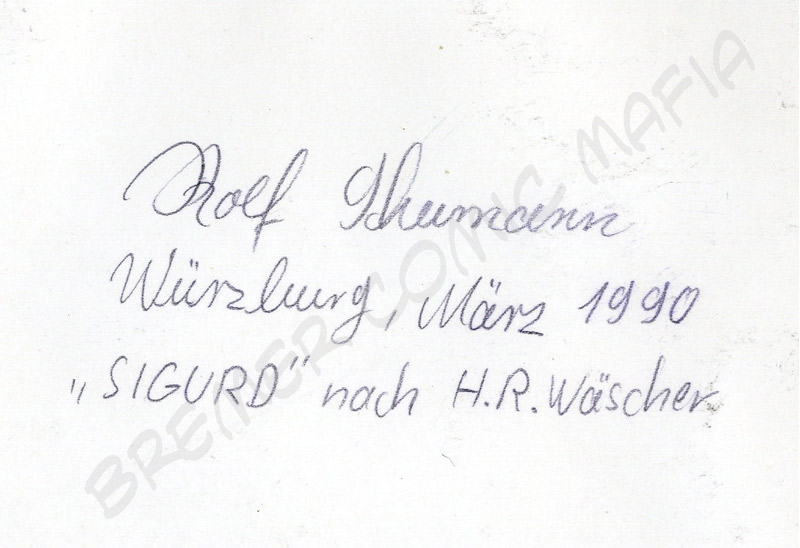 Rolf Thumann
Würzburg, März 1990
„SIGURD" nach H.R. Wäscher
BREMER COMIC MAFIA